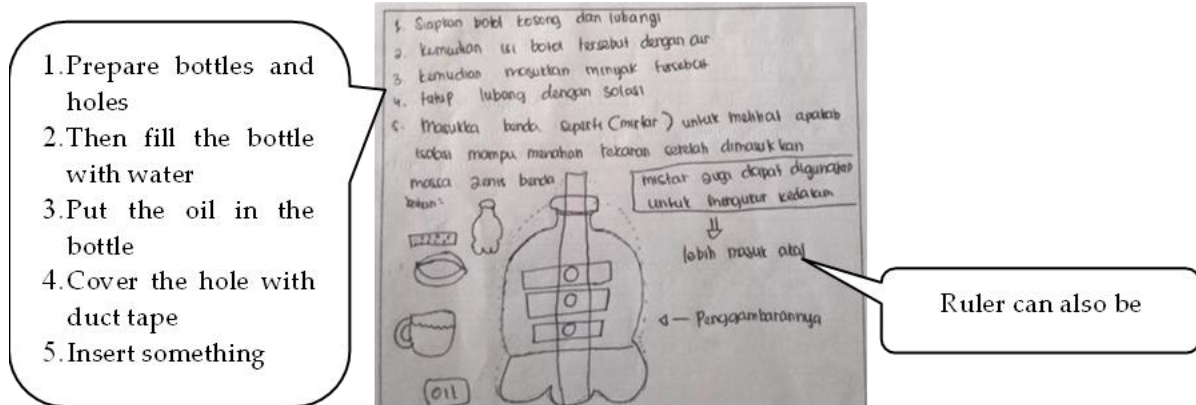 1. Prepare bottles and
holes
2. Then fill the bottle
with water
3. Put the oil in the
bottle
4. Cover the hole with
duct tape
5. Insert something
1. Siapkan botol kosong dan lubangi
2. kemudian isi botol tersebut dengan air
3. kemudian masukkan minyak tersebut
4. tutup lubang dengan solasi
5. Masukka benda seperti (mistar) untuk melihat apakah
isolasi mampu menahan tekanan setelah dimasukkan
massa jenis benda
mistar juga dapat digunakan
untuk mengukur kedalam
⇓
lebih masuk akal
Penggambarannya
OIL
Ruler can also be